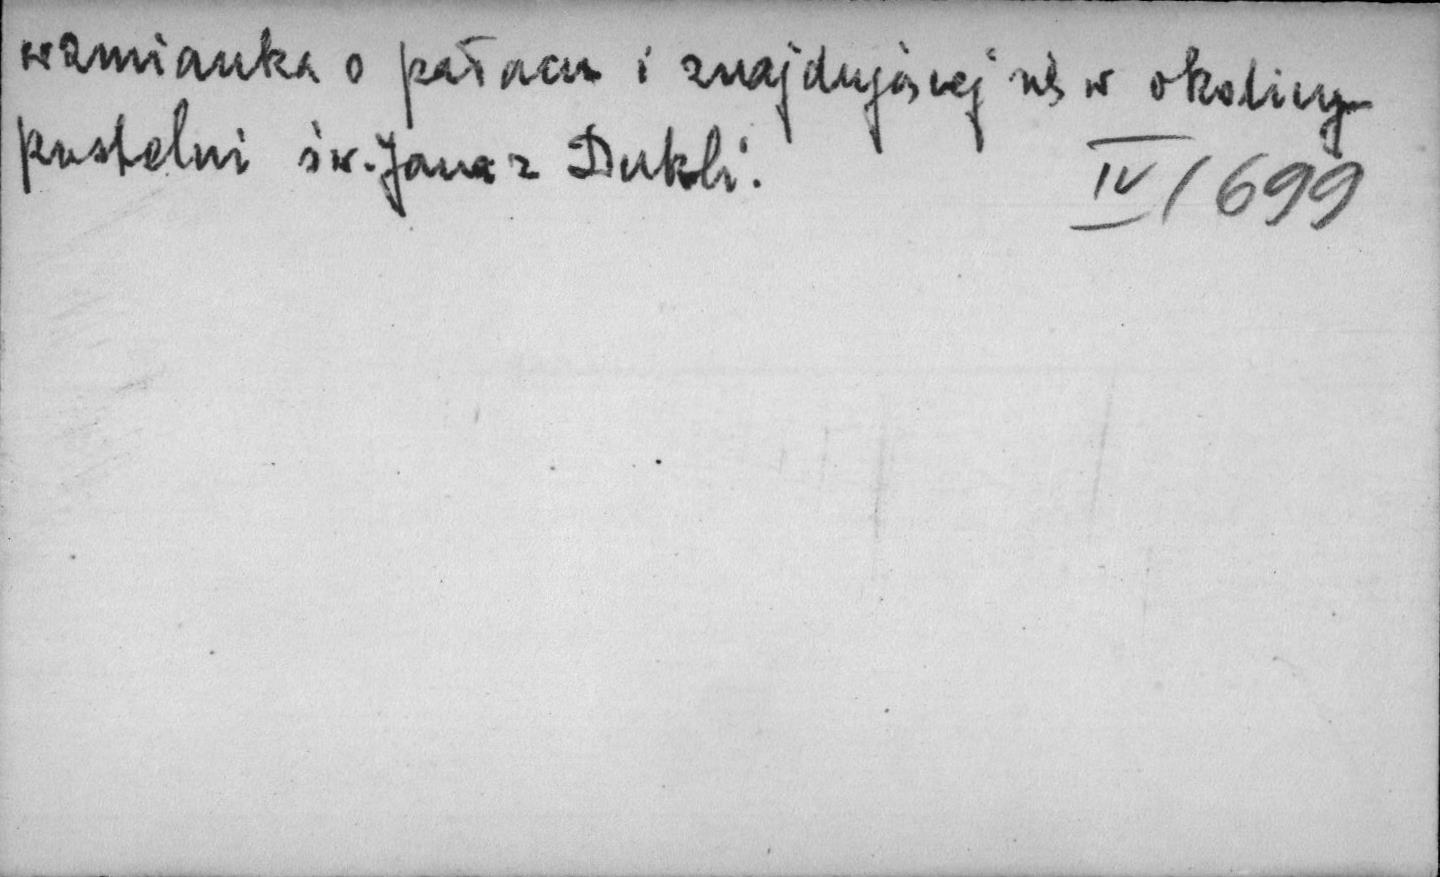 wzmianka o pałacu i znajdującej się w okolicy
pustelni św. Jana z Dukli.
IV/699